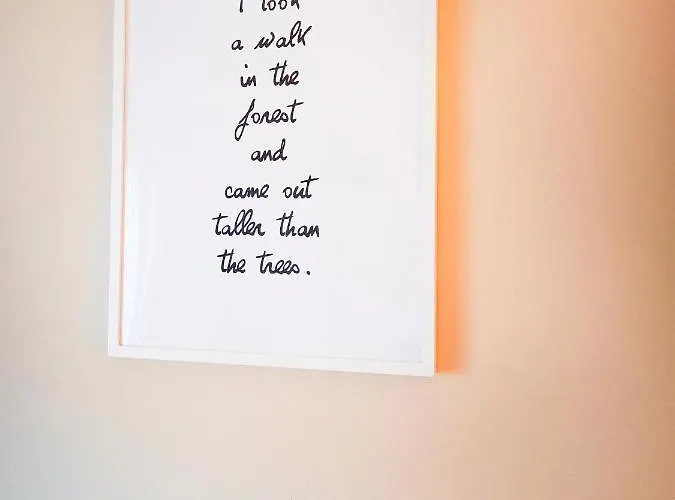 I took
a walk
in the
forest
and
came out
taller than
the trees.